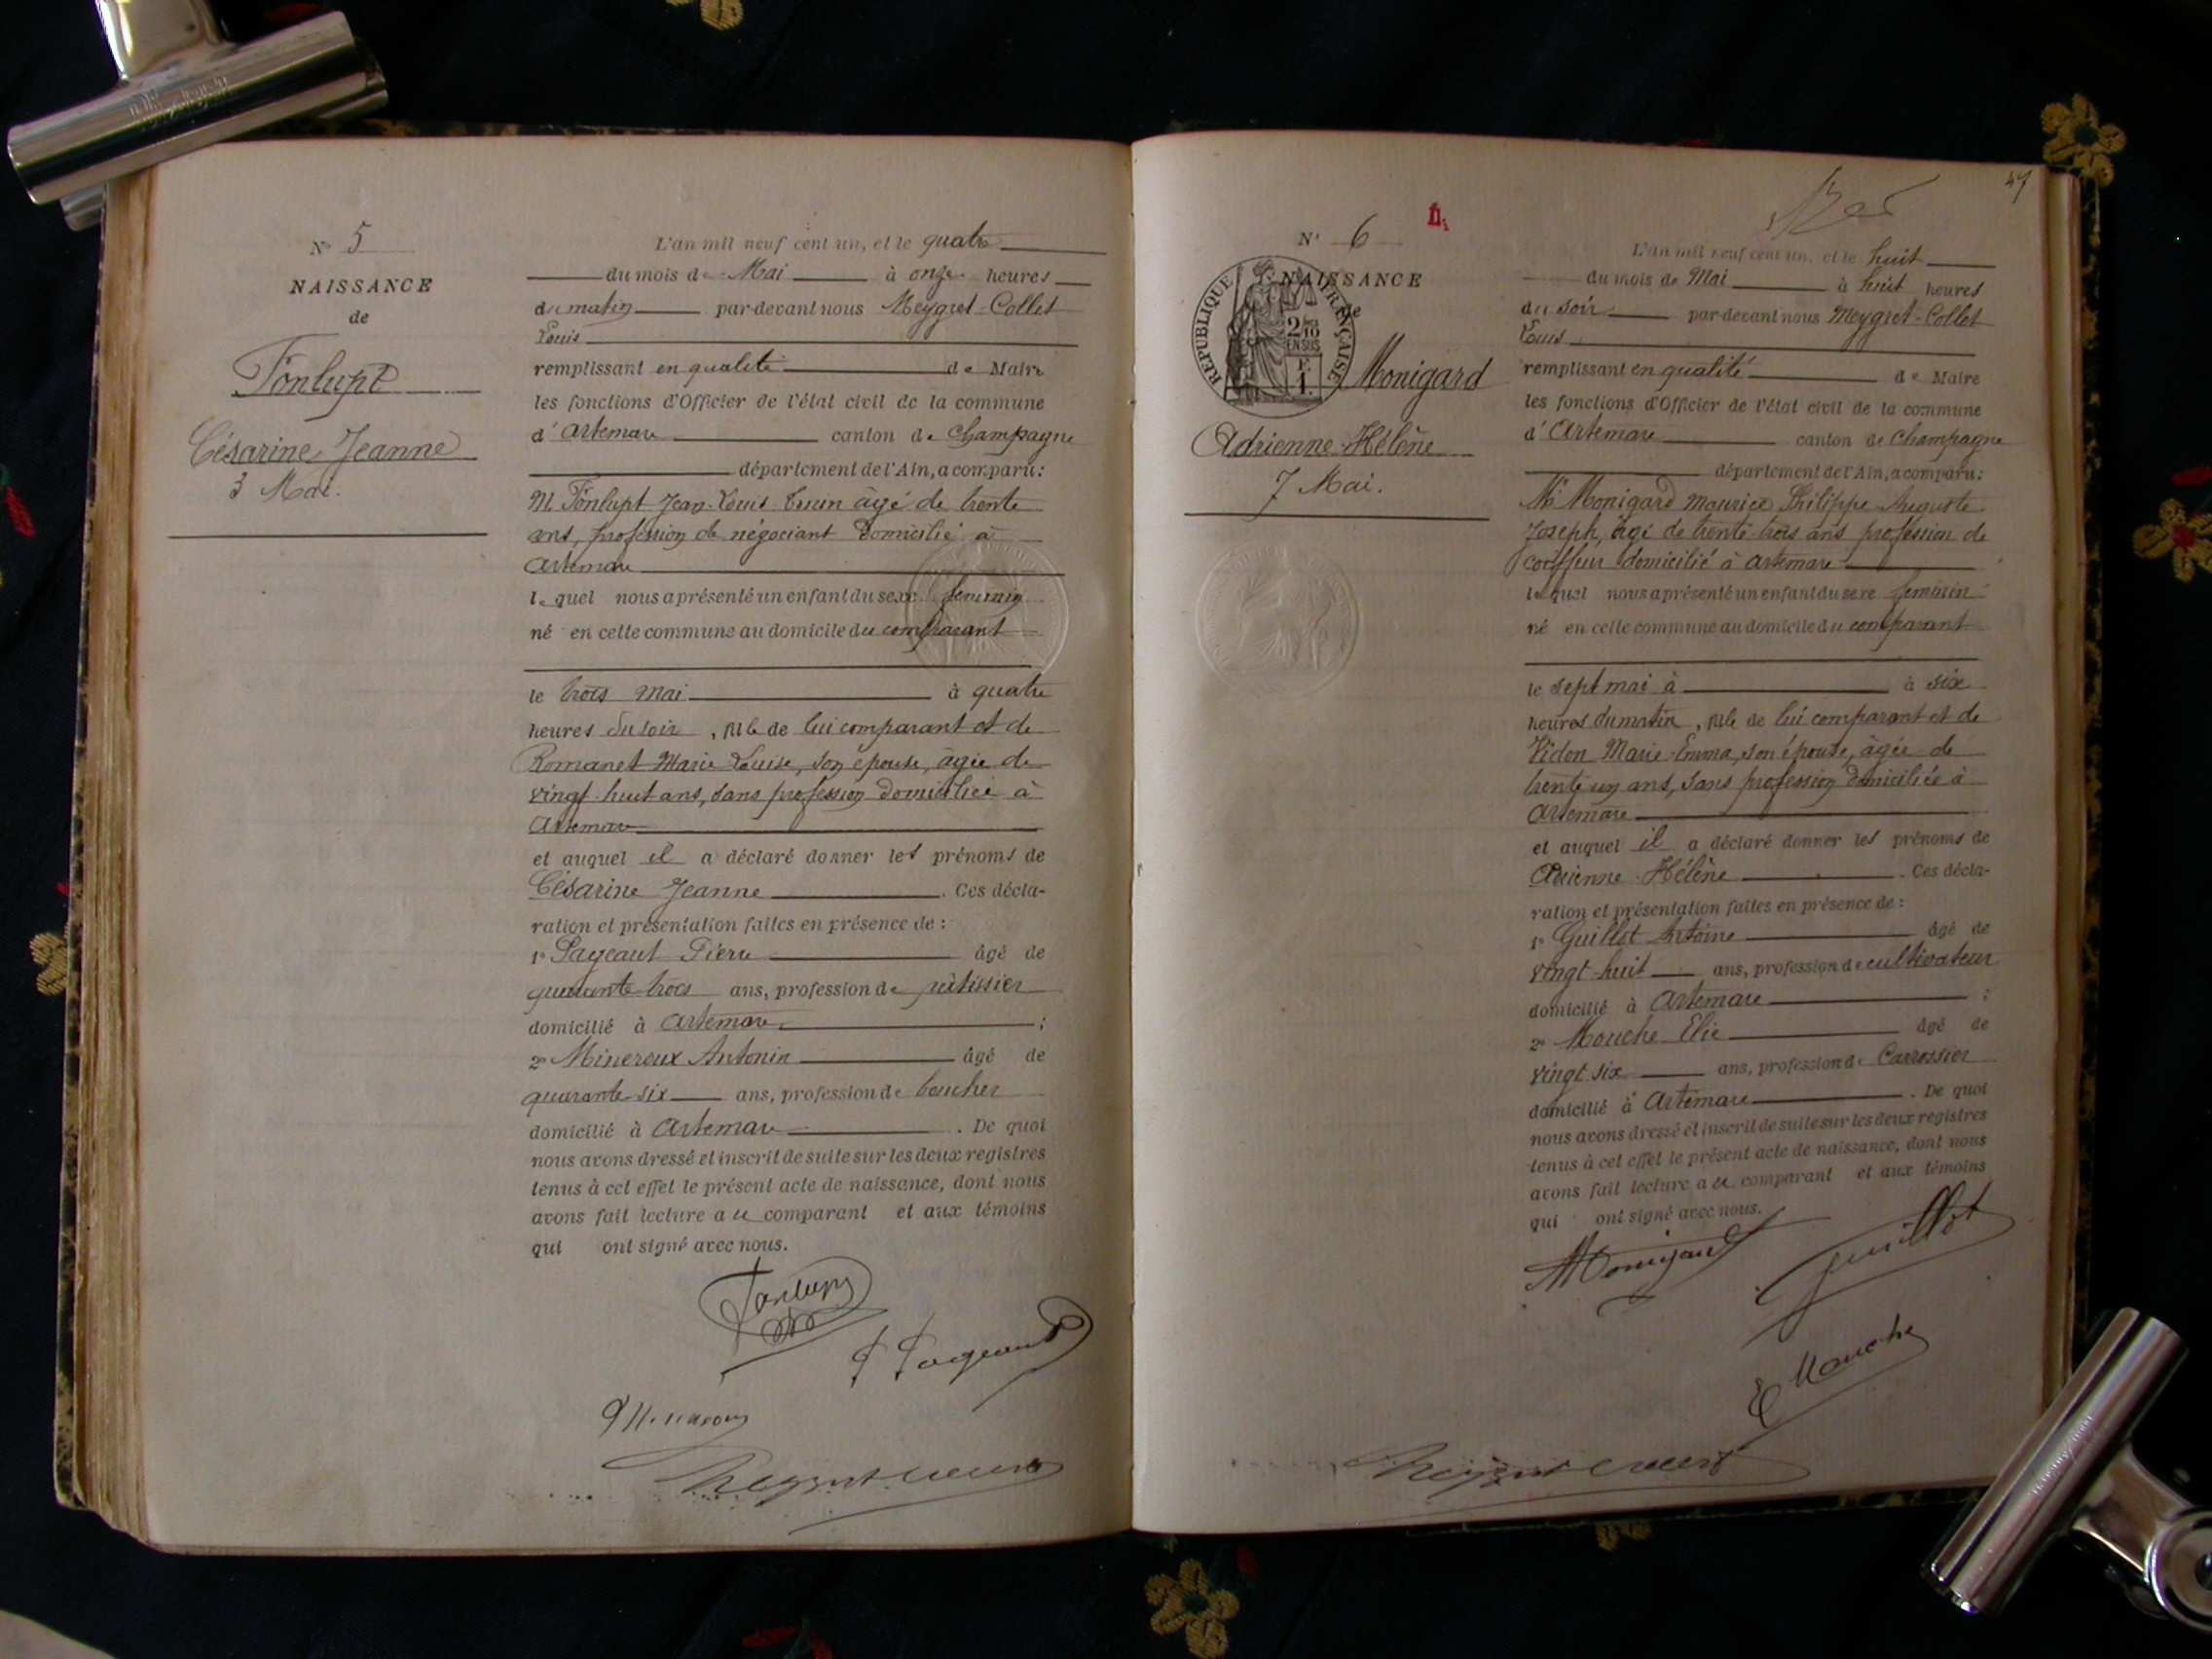 N° 5
NAISSANCE
de
Fonlupt
Césarine Jeanne
3 Mai.
L'an mil neuf cent un, et le quatre
du mois de Mai à onze heures
du matin par-devant nous Meygret-Collet
Louis
remplissant en qualité de Maire
les fonctions d'Officier de l'état civil de la commune
d'Artemare canton de Champagne
département de l'Ain, a comparu:
M Fonlupt Jean-Louis âgé de trente
ans, profession de négociant domicilié à
Artemare
lequel nous a présenté un enfant du sexe féminin
né en cette commune au domicile du comparant
le trois mai à quatre
heures du soir, fille de lui comparant et de
Romanet Marie Louise, son épouse, âgée de
vingt-huit ans, sans profession domiciliée à
Artemare
et auquel il a déclaré donner les prénoms de
Césarine Jeanne. Ces décla-
ration et présentation faites en présence de:
1° Pageaut Pierre âgé de
quarante-trois ans, profession de pâtissier
domicilié à Artemare;
2° Minereux Antonin âgé de
quarante-six ans, profession de boucher
domicilié à Artemare. De quoi
nous avons dressé et inscrit de suite sur les deux registres
tenus à cet effet le présent acte de naissance, dont nous
avons fait lecture au comparant et aux témoins
qui ont signé avec nous.
Fonlupt
P Pageaut
47
N° 6
NAISSANCE
de
RÉPUBLIQUE FRANÇAISE
2/10
EN SUS
F.
1.
Monigard
Adrienne-Hélène
7 Mai.
L'an mil neuf cent un, et le huit
du mois de Mai à huit heures
du soir par-devant nous Meygret-Collet
Louis
remplissant en qualité de Maire
les fonctions d'Officier de l'état civil de la commune
d'Artemare canton de Champagne
département de l'Ain, a comparu:
Mr Monigard Maurice Philippe Auguste
Joseph, âgé de trente-trois ans profession de
coiffeur domicilié à Artemare
lequel nous a présenté un enfant du sexe féminin
né en cette commune au domicile du comparant
le sept mai à à six
heures du matin, fille de lui comparant et de
Vidon Marie-Emma, son épouse, âgée de
trente un ans, sans profession domiciliée à
Artemare
et auquel il a déclaré donner les prénoms de
Adrienne-Hélène. Ces décla-
ration et présentation faites en présence de:
1° Guillot Antoine âgé de
vingt-huit ans, profession de cultivateur
domicilié à Artemare;
2° Mouche Elie âgé de
vingt-six ans, profession de Carrossier
domicilié à Artemare. De quoi
nous avons dressé et inscrit de suite sur les deux registres
tenus à cet effet le présent acte de naissance, dont nous
avons fait lecture au comparant et aux témoins
qui ont signé avec nous.
Monigard
Guillot
E Mouche